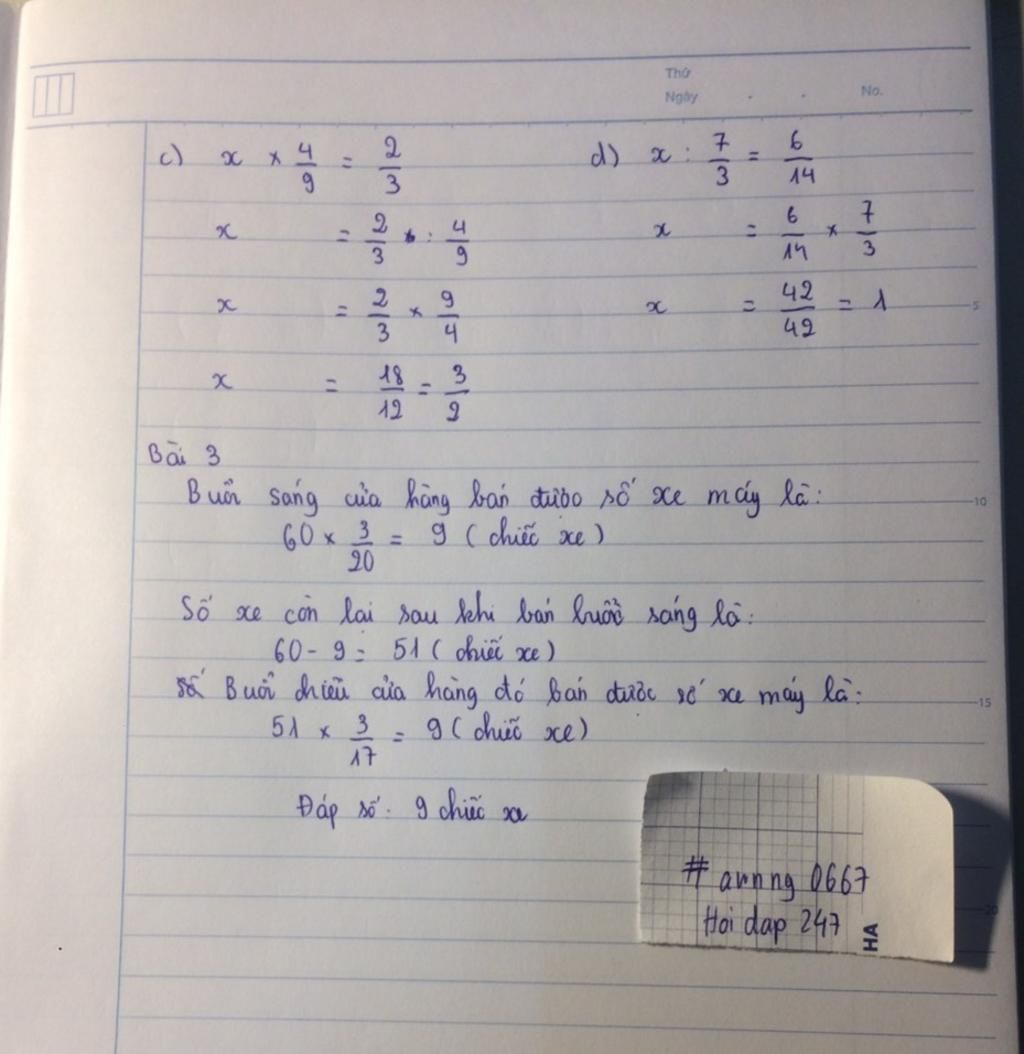 Thứ
Ngày . . No.
c) x × 4/9 = 2/3
x = 2/3 : 4/9
x = 2/3 × 9/4
x = 18/12 = 3/2
d) x : 7/3 = 6/14
x = 6/14 × 7/3
x = 42/42 = 1
5
Bài 3
Buổi sáng cửa hàng bán được số xe máy là:
10
60 × 3/20 = 9 (chiếc xe)
Số xe còn lại sau khi bán buổi sáng là:
60 - 9 = 51 (chiếc xe)
Buổi chiều cửa hàng đó bán được số xe máy là:
15
51 × 3/17 = 9 (chiếc xe)
Đáp số: 9 chiếc xe
# annng 0667
Hoi dap 247
HA
20